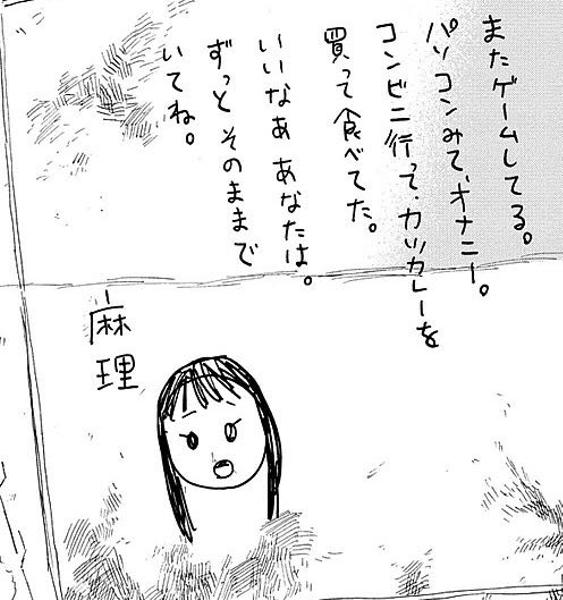 またゲームしてる。
パソコンみて、オナニー。
コンビニ行って、カツカレーを
買って食べてた。
いいなあ あなたは。
ずっと そのままで
いてね。
麻理